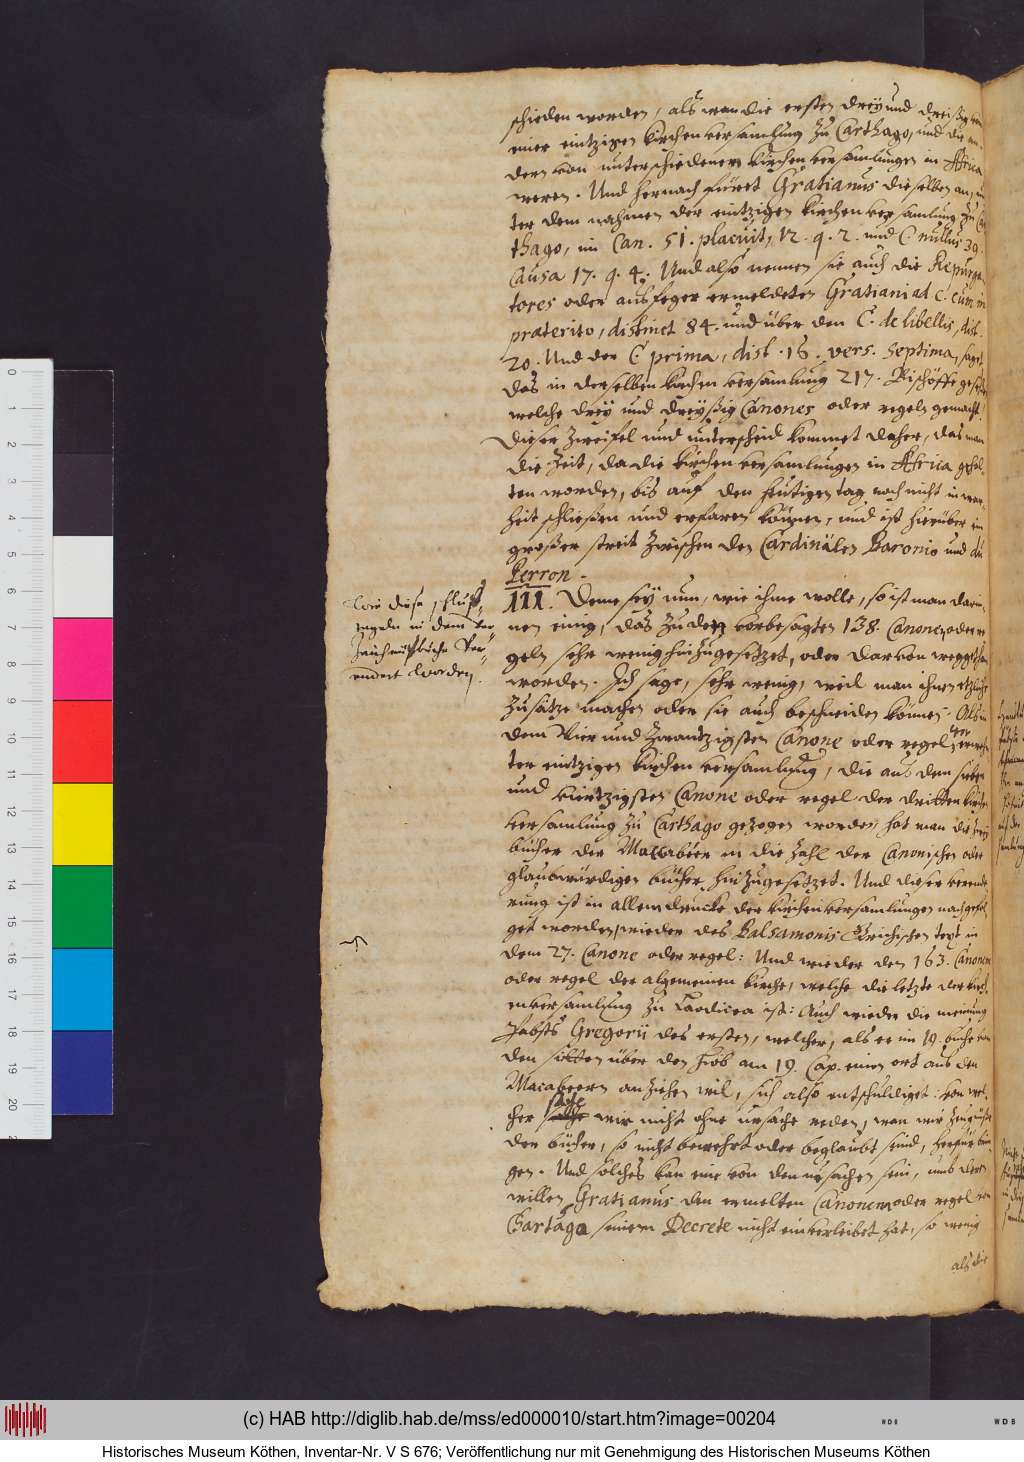 schieden worden, als wan die ersten drey und dreißig von
einer eintzigen kirchenversamlung zu Carthago, und die an-
dern von unterschiedenen kirchenversamlungen in Africa
weren. Und hernach füret Gratianus dieselben an, un-
ter dem nahmen der eintzigen kirchenversamlung zu Car
thago, im Can. 51. placuit, 12. q. 2. und C. nullus 39.
Causa 17. q. 4. Und also nennen sie auch die Repurga
tores oder ausfeger ermeldeten Gratiani ad C. cum in
praterito, distinct 84. und über den C. de libellis, dist.
20. Und der C. prima, dist. 16. vers. Septima, saget
das in derselben kirchenversamlung 217. Bischöffe gesessen
welche drey und dreyßig Canones oder regeln gemacht.
Dieser zweifel und unterscheid kommet daher, das man
die Zeit, da die kirchenversamlungen in Africa gehal
ten worden, bis auf den heutigen tag noch nicht in war-
heit schließen und erfaren können, und ist hierüber ein
großer streit zwischen den Cardinälen Baronio und du
Perron.
III. Deme sey nun, wie ihme wolle, so ist man darin-
nen einig, das zu den vorbesagten 138. Canonen oder re
geln sehr wenig hinzugesetzet, oder darvon weggethan
worden. Ich sage, sehr wenig, weil man ihnen etzliche
zusätze machen oder sie auch beschneiden können. Als in
dem Vier und zwantzigsten Canone oder regel der
ter eintzigen kirchenversamlung, die aus dem sieben
und viertzigsten Canone oder regel der dritten kirchen
versamlung zu Carthago gezogen worden, hat man die zwey
bücher der Maccabeer in die zahl der Canonischen oder
glaubwürdigen bücher hinzugesetzet. Und dieser verende
rung ist in allem drucke der kirchenversamlungen nachgefol
get worden, wieder des Balsamonis Grichischen text in
dem 27. Canone oder regel: Und wieder den 163. Canonem
oder regel der algemeinen kirche, welche die letzte der kirch
enversamlung zu Laodicea ist: Auch wieder die meinung
Pabsts Gregorii des ersten, welcher, als er im 19. buche von
den sitten über den Hiob am 19. Cap. einen ort aus den
Macabeern anziehen wil, sich also entschuldiget: von wel
cher sache wir nicht ohne ursache reden, wan wir zeugnisse
der bücher, so nicht bewehrt oder beglaubt seind, herfürbrin
gen. Und solches kan eine von den ursachen sein, umb deren
willen Gratianus den ermelten Canonem oder regel von
Cartago seinem Decrete nicht einverleibet hat, so wenig
als die
Wie diese schluß-
regeln in dem
Ver-
endert worden.
(c) HAB http://diglib.hab.de/mss/ed000010/start.htm?image=00204
WDB
WDB
Historisches Museum Köthen, Inventar-Nr. V S 676; Veröffentlichung nur mit Genehmigung des Historischen Museums Köthen
0
1
2
3
4
5
6
7
8
9
10
11
12
13
14
15
16
17
18
19
20